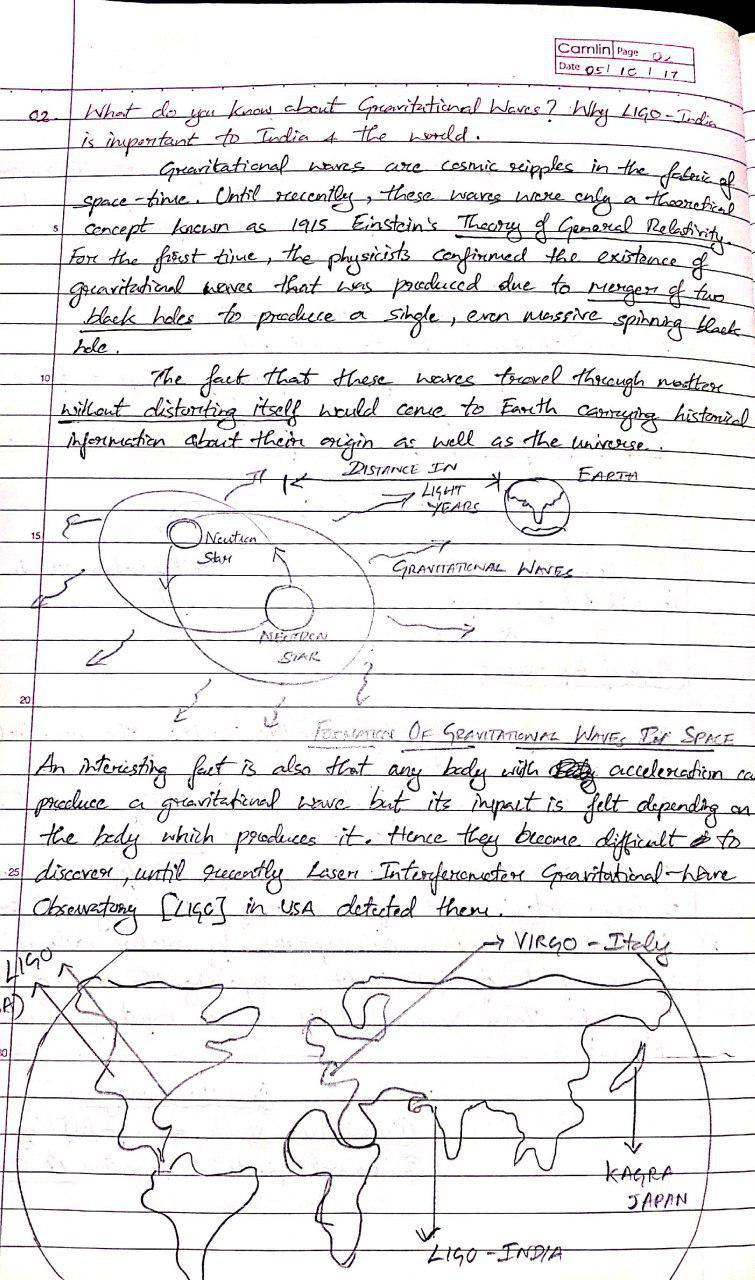 Camlin Page 02
Date 05/10/17
Q2. What do you know about Gravitational Waves? Why LIGO-India
is important to India & the world.
Gravitational waves are cosmic ripples in the fabric of
space-time. Until recently, these waves were only a theoretical
5 concept known as 1915 Einstein's Theory of General Relativity.
For the first time, the physicists confirmed the existence of
gravitational waves that was produced due to merger of two
black holes to produce a single, even massive spinning black
hole.
10 The fact that these waves travel through matter
without distorting itself would come to Earth carrying historical
information about their origin as well as the universe.
DISTANCE IN
LIGHT
YEARS
EARTH
15
Neutron
Star
GRAVITATIONAL WAVES
NEUTRON
STAR
20
FORMATION OF GRAVITATIONAL WAVES IN SPACE
An interesting fact is also that any body with acceleration ca
produce a gravitational wave but its impact is felt depending on
the body which produces it. Hence they become difficult to
25 discover, until recently Laser Interferometer Gravitational-Wave
Observatory [LIGO] in USA detected them.
VIRGO - Italy
LIGO
A)
30
KAGRA
JAPAN
LIGO - INDIA